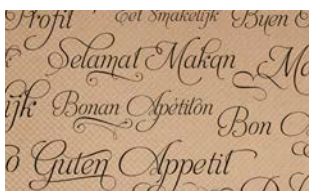 Profil
Eet Smakelijk
Buen
Selamat Makan
Bonan Apétitôn
Bon
Guten Appetit